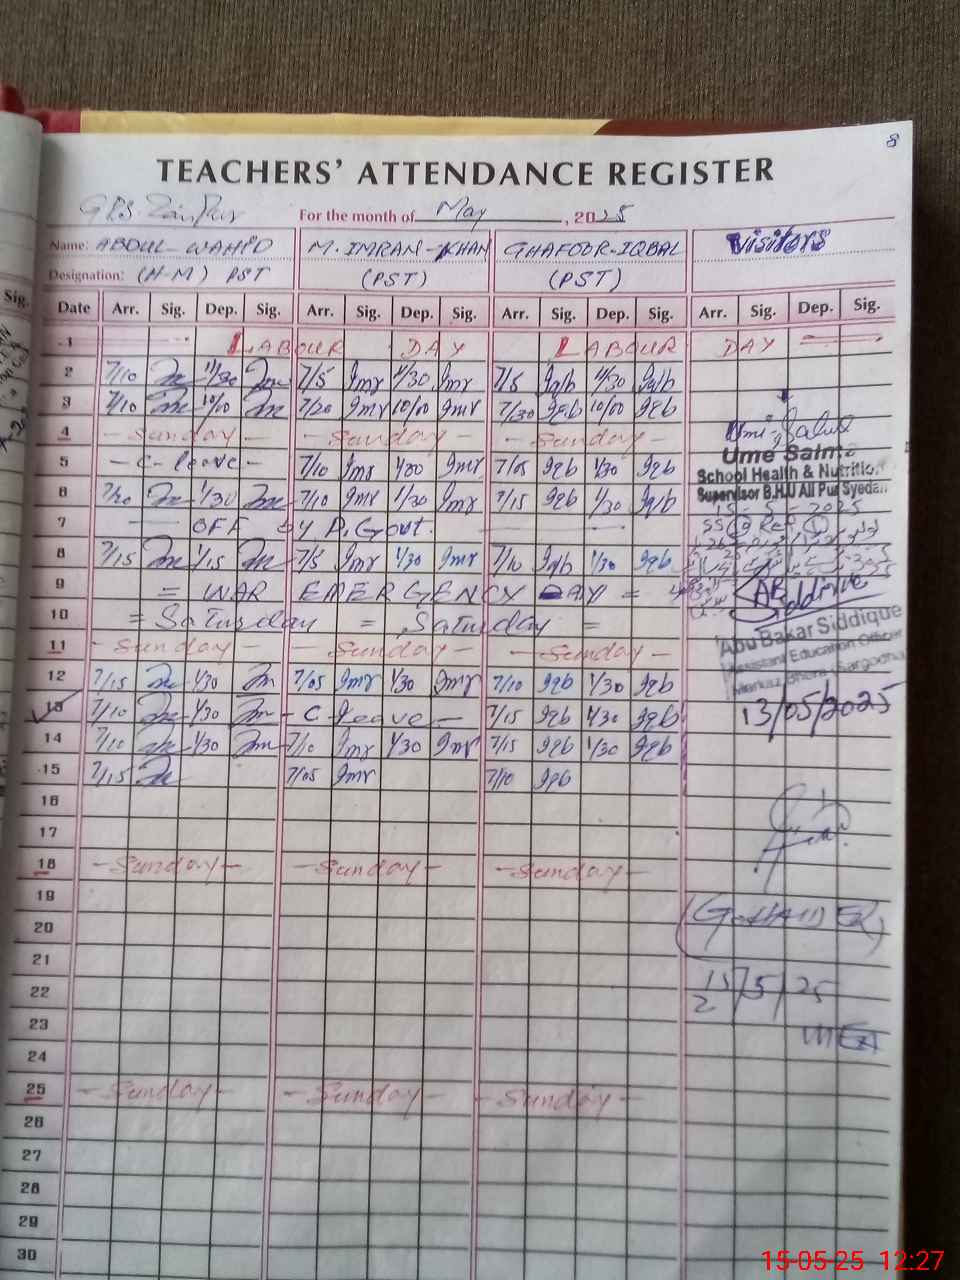 8
TEACHERS' ATTENDANCE REGISTER
GPS
For the month of May, 2025
Name: ABDUL-WAHID M. IMRAN-KHAN GHAFOOR-IQBAL Visitors
Designation: (H-M) PST (PST) (PST)
Sig. Date Arr. Sig. Dep. Sig. Arr. Sig. Dep. Sig. Arr. Sig. Dep. Sig. Arr. Sig. Dep. Sig.
1 LABOUR DAY LABOUR DAY
2 7/10 11/30 7/5 Imr 11/30 Imr 7/5 Iqb 11/30 Iqb
3 7/10 10/00 7/20 Imr 10/00 Imr 7/30 Iqb 10/00 Iqb
4 - Sunday - - Sunday - - Sunday -
5 - C- leave - 7/10 Imr 1/30 Imr 7/05 Iqb 1/30 Iqb
6 7/20 1/30 7/10 Imr 1/30 Imr 7/15 Iqb 1/30 Iqb
7 OFF by P. Govt.
8 7/15 1/15 7/5 Imr 1/30 Imr 7/10 Iqb 1/30 Iqb
9 = WAR EMERGENCY DAY =
10 = Saturday = Saturday =
11 - Sunday - - Sunday - - Sunday -
12 7/15 1/30 7/05 Imr 1/30 Imr 7/10 Iqb 1/30 Iqb
13 7/10 1/30 - C leave - 7/15 Iqb 1/30 Iqb
14 7/10 1/30 7/10 Imr 1/30 Imr 7/15 Iqb 1/30 Iqb
15 7/15 7/05 Imr 7/10 Iqb
16
17
18 - Sunday - - Sunday - - Sunday -
19
20
21
22
23
24
25 - Sunday - - Sunday - - Sunday -
26
27
28
29
30
Ume
School Health & Nutrition
Supervisor B.H.U Ali Pur Syedan
15-5-2025
Abu Bakar Siddique
Assistant Education Officer
13/05/2025
15/5/25
15-05-25 12:27